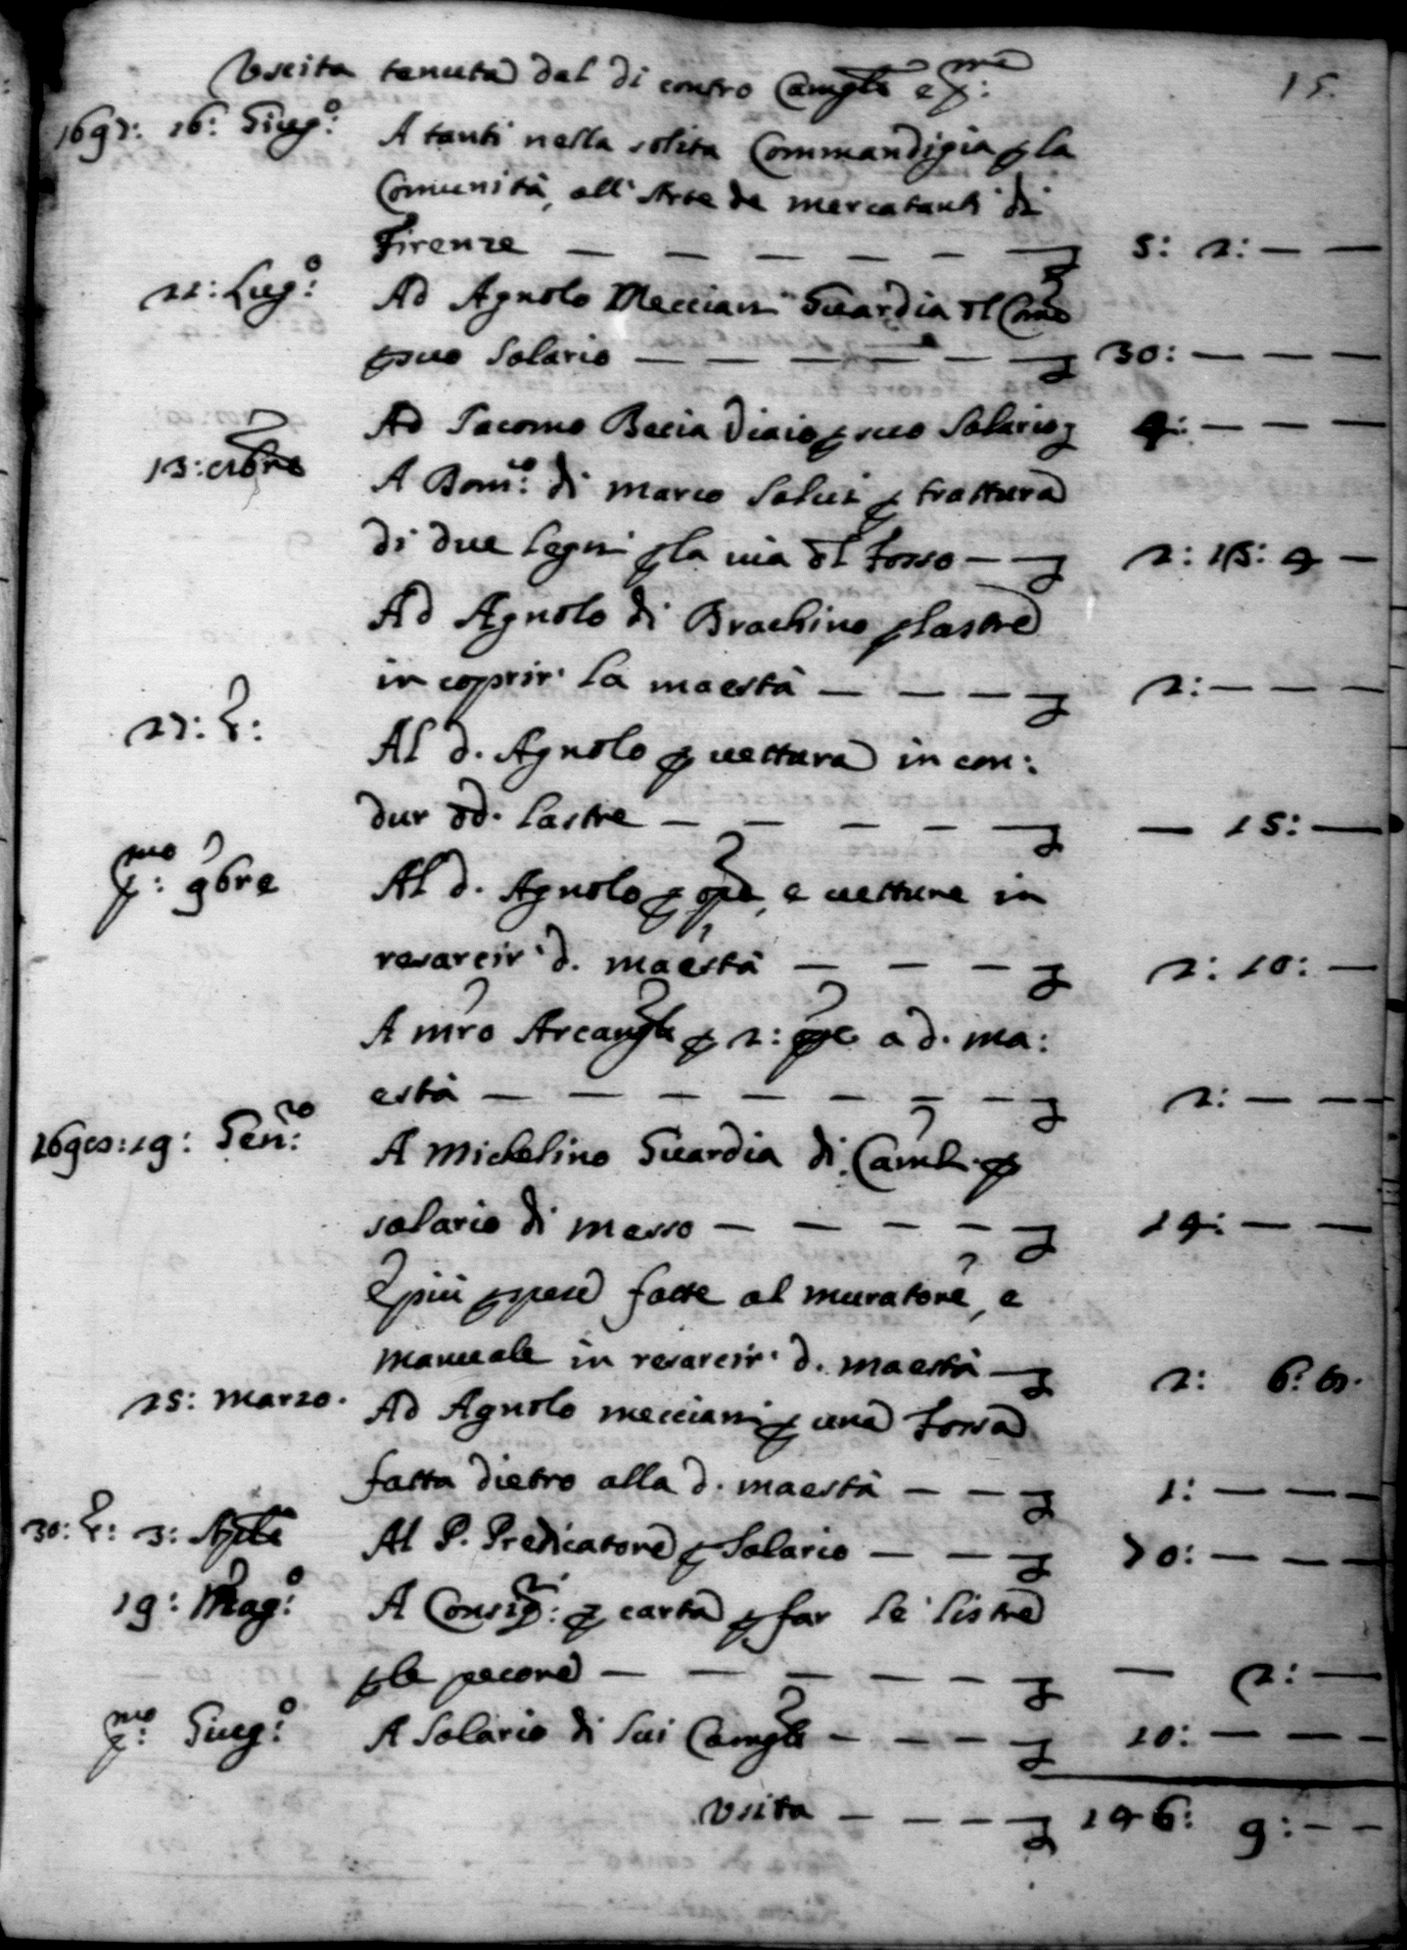 15.
Uscita tenuta dal di contro Camgho e pma:
1697: 16: Giugo: A tanti nella solita Commandigia p la
Comunità, all'Arte de mercatanti di
Firenze — — — — — — £ 5: 2: — —
22: Lugo: Ad Agnolo Mecciani Guardia dl Comne
p suo Salario — — — — — — £ 30: — — —
Ad Jacomo Becia Viaio p suo Salario £ 4: — — —
13: A Domco: di Marco Salvi p trattura
di due Legni p la via dl fosso — — £ 2: 15: 4 —
Ad Agnolo di Brachino p lastre
in coprir' la maestà — — — — £ 2: — — —
27: d: Al d. Agnolo p vettura in con:
dur dd. lastre — — — — — £ — 15: —
pmo: 9bre Al d. Agnolo p ope, e vetture in
resarcir' d. maestà — — — £ 2: 10: —
A mro Arcanglo p 2: ope a d. ma:
està — — — — — — — — £ 2: — —
19: Genro: A Michelino Guardia di Camli. p
salario di messo — — — — — £ 14: — —
E più p spese fatte al muratore, e
manuale in resarcir' d. maestà — £ 2: 6: 8.
25: Marzo. Ad Agnolo mecciani p una fossa
fatta dietro alla d. maestà — — — £ 1: — — —
30: d: 3: Aple Al P. Predicatore p Salario — — — £ 70: — — —
19: Mago: A Consigri: p carta p far le listre
p le pecore — — — — — — £ — 2: —
pmo: Giugo: A Salario di lui Camgho — — — — £ 10: — — —
Usita — — — — £ 146: 9: — —